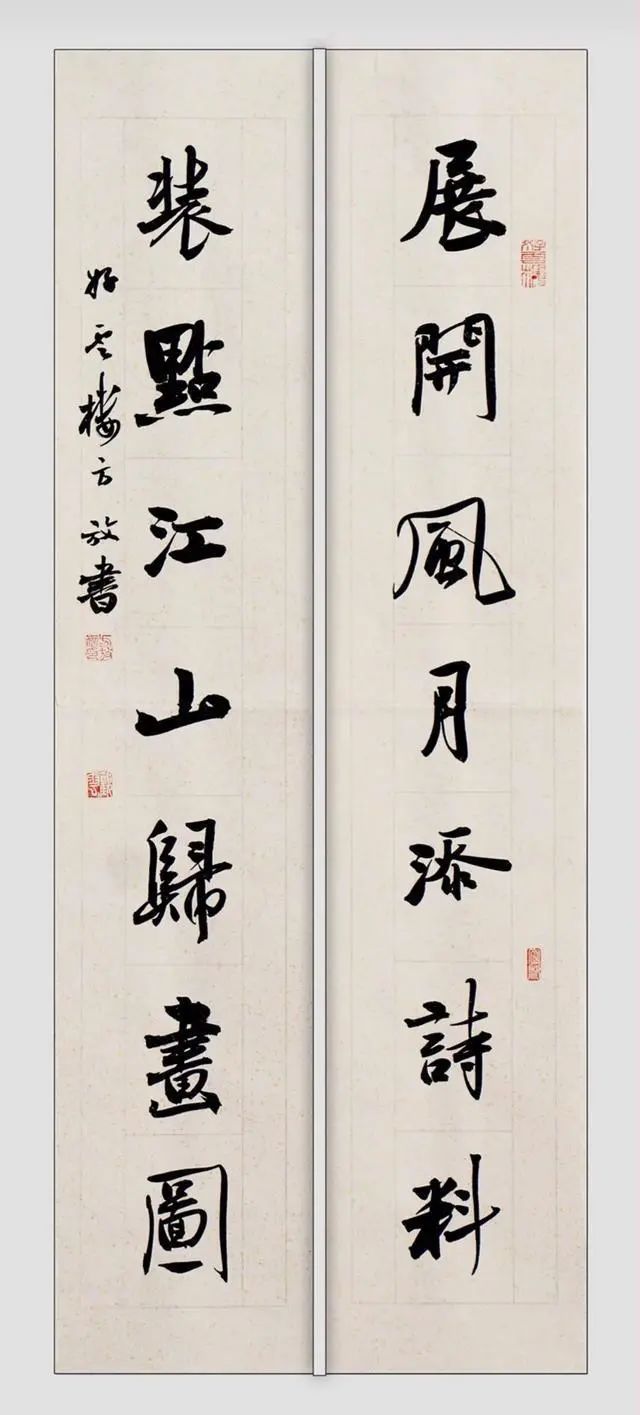 展開風月添詩料
裝點江山歸畫圖
好雲樓方放書